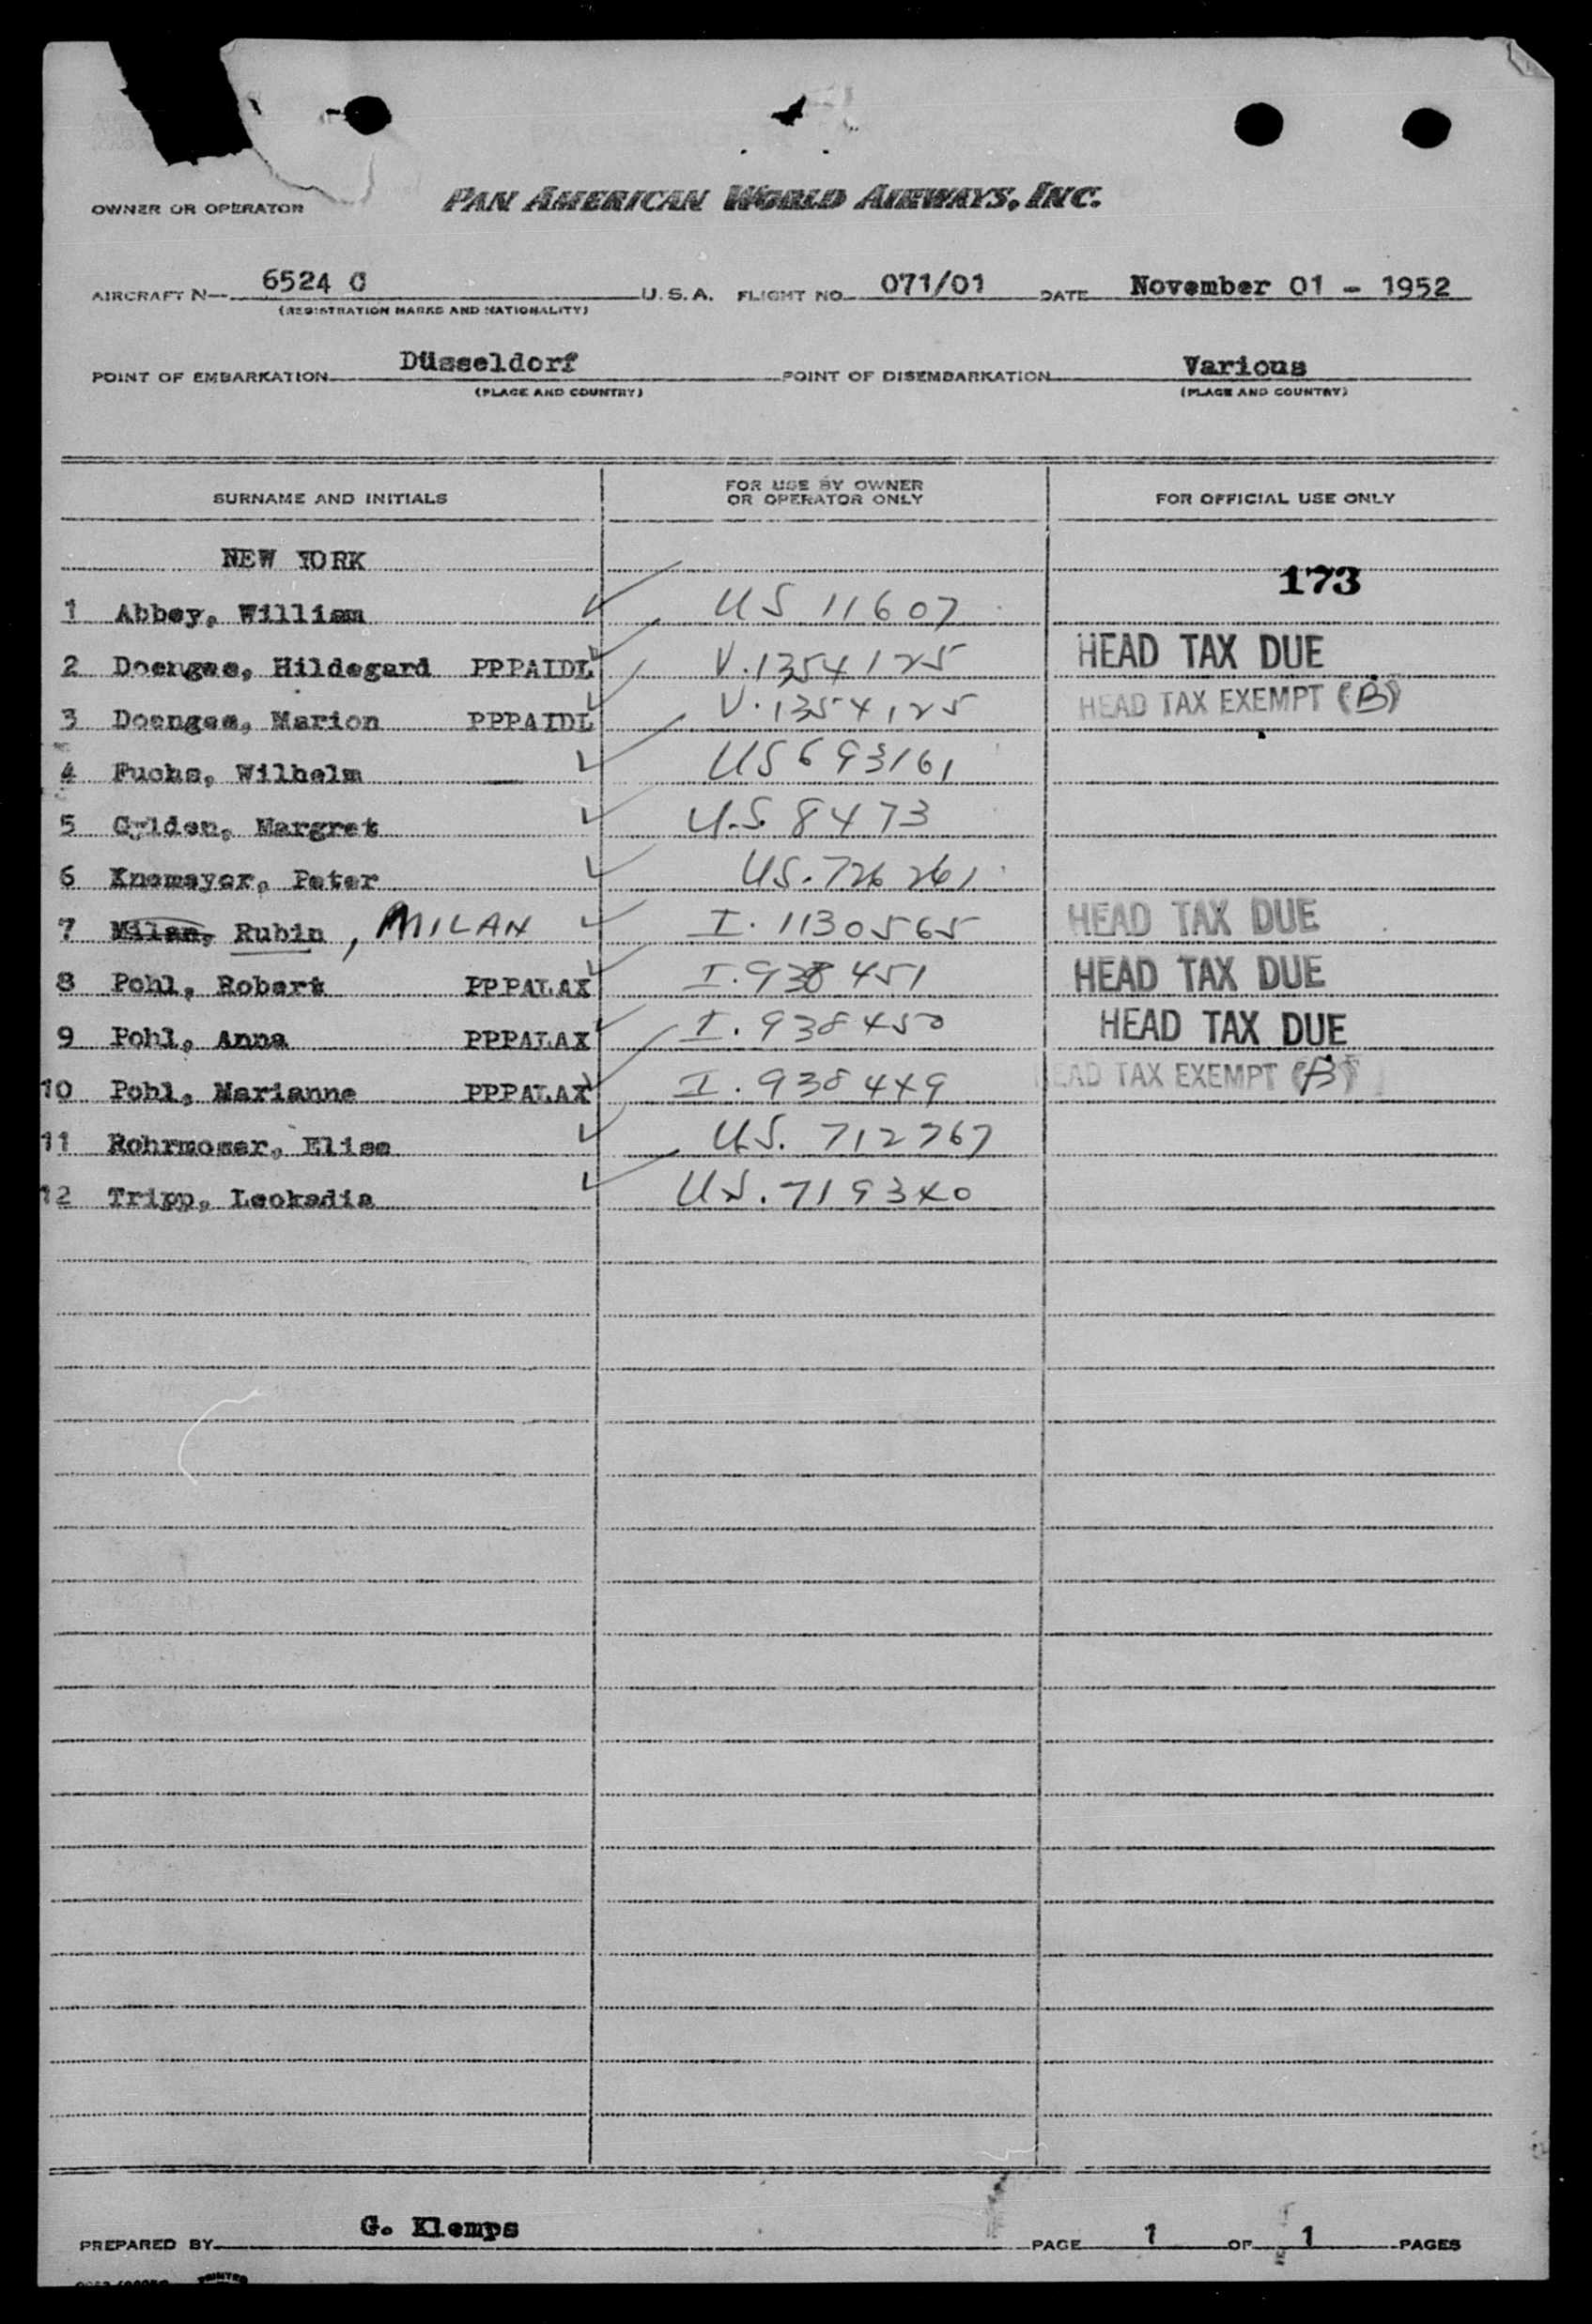 OWNER OR OPERATOR PAN AMERICAN WORLD AIRWAYS, INC.
AIRCRAFT N— 6524 C U.S.A. FLIGHT NO. 071/01 DATE November 01 - 1952
(REGISTRATION MARKS AND NATIONALITY)
POINT OF EMBARKATION Düsseldorf POINT OF DISEMBARKATION Various
(PLACE AND COUNTRY) (PLACE AND COUNTRY)
SURNAME AND INITIALS FOR USE BY OWNER OR OPERATOR ONLY FOR OFFICIAL USE ONLY
NEW YORK
173
1 Abbey, William US 11607
2 Doenges, Hildegard PPPAIDL V.1354125 HEAD TAX DUE
3 Doenges, Marion PPPAIDL V.1354125 HEAD TAX EXEMPT (B)
4 Fuchs, Wilhelm US 693161
5 Gylden, Margret U.S. 8473
6 Knemeyer, Peter US. 726261
7 Milan, Rubin, MILAN I. 1130565 HEAD TAX DUE
8 Pohl, Robert PPPALAX I.938451 HEAD TAX DUE
9 Pohl, Anna PPPALAX I.938450 HEAD TAX DUE
10 Pohl, Marianne PPPALAX I.938449 HEAD TAX EXEMPT (B)
11 Rohrmoser, Elise US. 712767
12 Tripp, Leokadia US. 719340
PREPARED BY G. Klemps PAGE 1 OF 1 PAGES
PRINTED